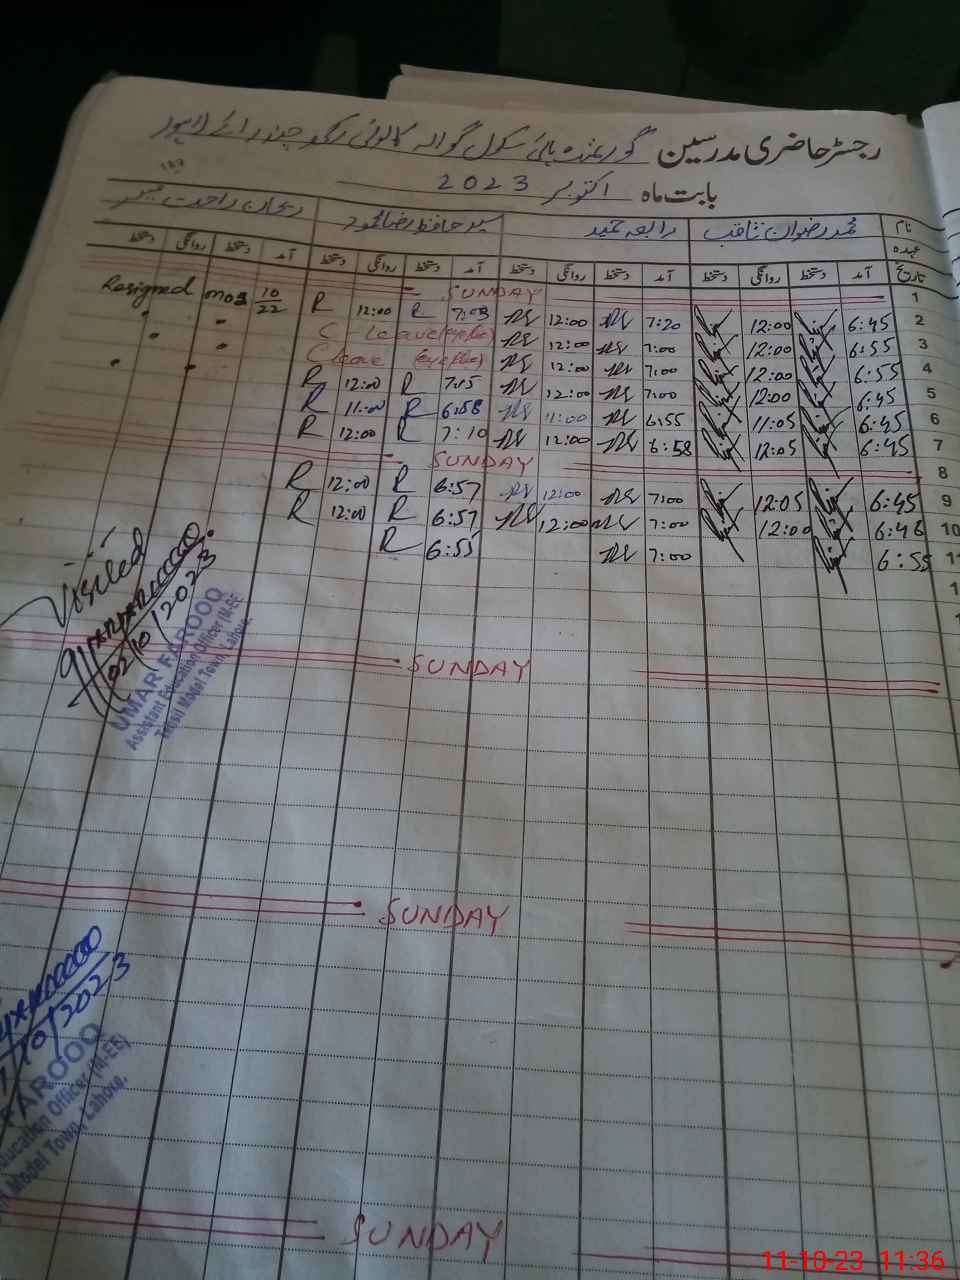 رجسٹر حاضری مدرسین گورنمنٹ ہائی سکول گوالہ کالونی رکھ چندرائے لاہور
بابت ماہ اکتوبر 2023
نام محمد رضوان ثاقب رابعہ حمید سید حافظ رضا محمود ریحان راحت
عہدہ
تاریخ آمد دستخط روانگی دستخط آمد دستخط روانگی دستخط آمد دستخط روانگی دستخط آمد دستخط روانگی دستخط
1 SUNDAY
2 6:45 12:00 7:20 12:00 7:03 R 12:00 R Resigned 10/22
3 6:55 12:00 7:00 12:00 C leave
4 6:55 12:00 7:00 12:00 C leave
5 6:45 12:00 7:00 12:00 7:15 R 12:00 R
6 6:45 11:05 6:55 11:00 6:58 R 11:00 R
7 6:45 12:05 6:58 12:00 7:10 R 12:00 R
8 SUNDAY
9 6:45 12:05 7:00 12:00 6:57 R 12:00 R
10 6:46 12:00 7:00 12:00 6:57 R 12:00 R
11 6:55 7:00 6:55 R
Visited
02/10/2023
UMAR FAROOQ
Assistant Education Officer (M-EE
Tehsil Model Town Lahore.
SUNDAY
SUNDAY
10/2023
FAROOQ
ducation Officer (M-EE)
Model Town, Lahore.
SUNDAY
11-10-23 11:36